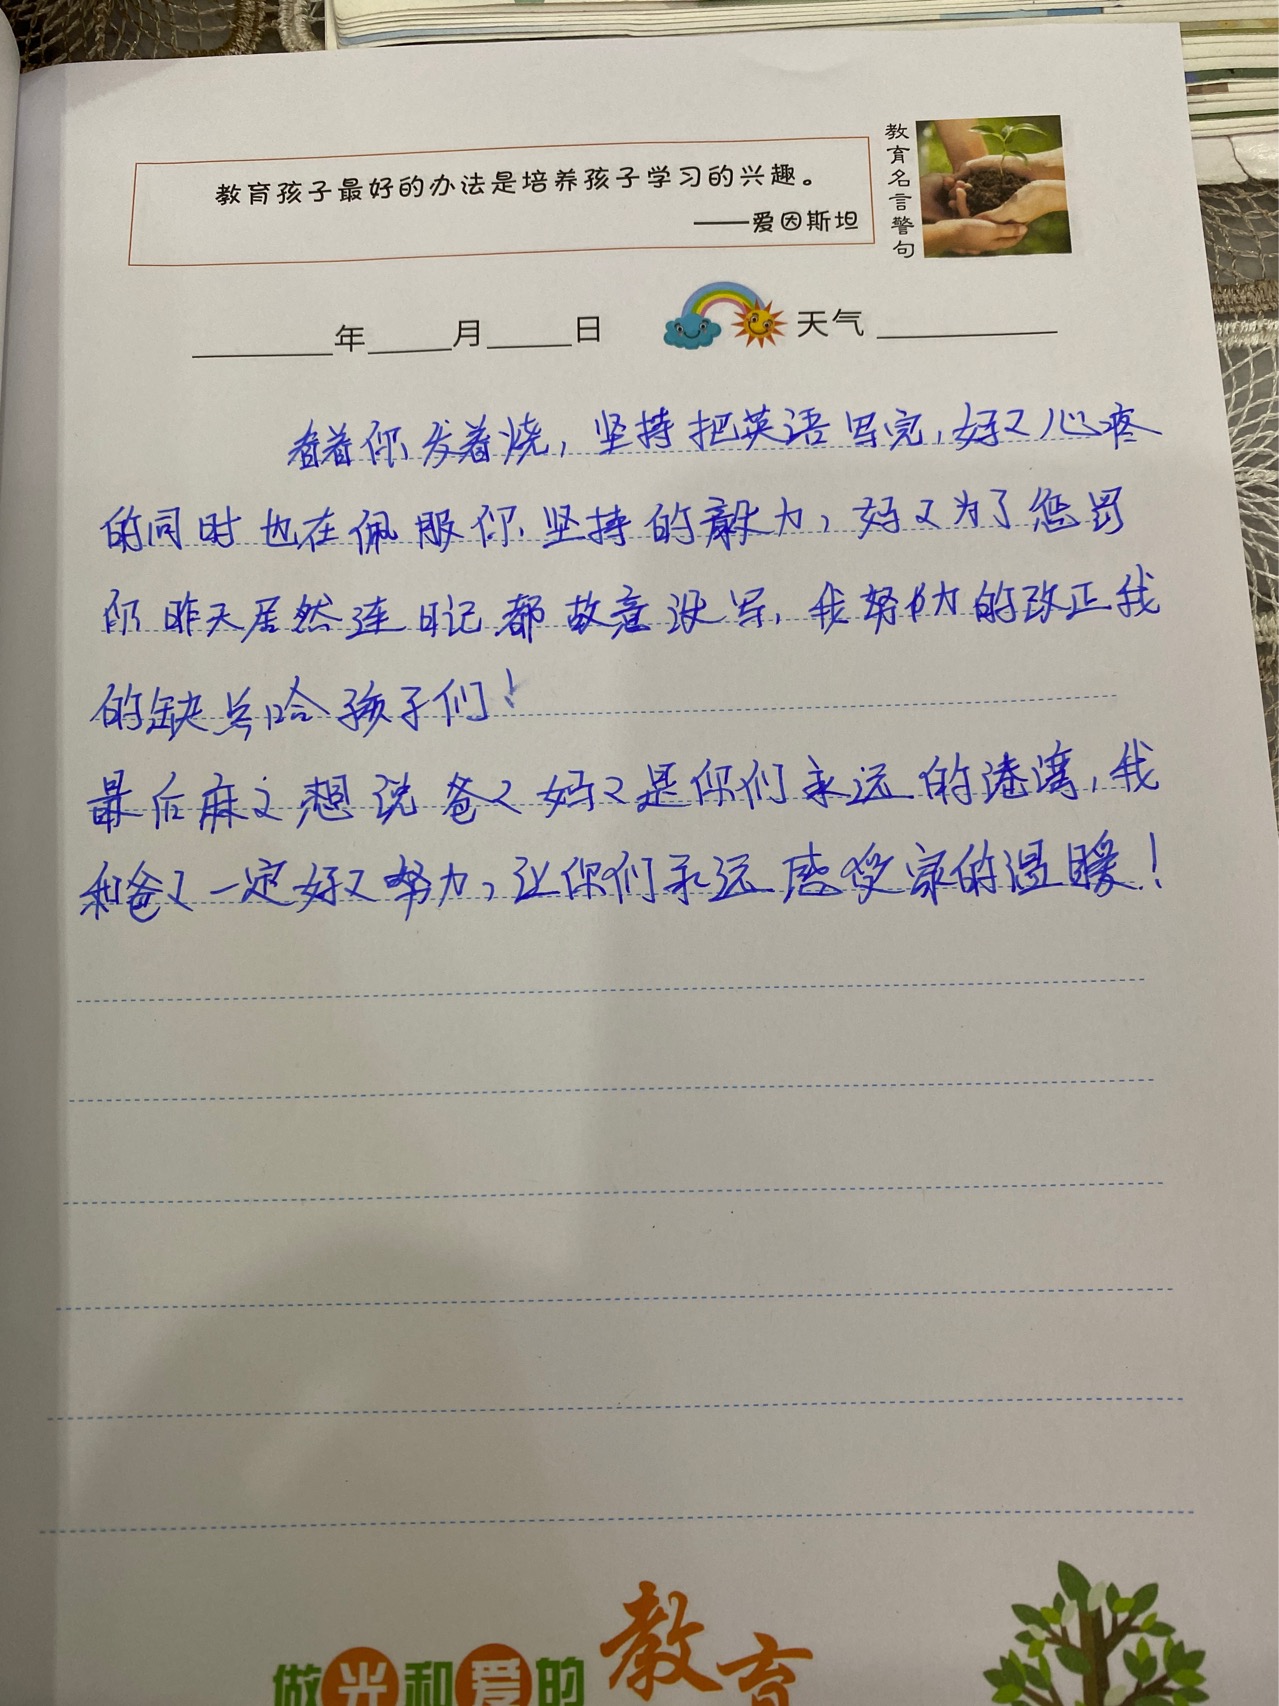 教育孩子最好的办法是培养孩子学习的兴趣。
——爱因斯坦
教育名言警句
年 月 日 天气
看着你发着烧，坚持把英语写完，妈々心疼
的同时也在佩服你坚持的毅力，妈々为了惩罚
你昨天居然连日记都故意没写，我努力的改正我
的缺点哈孩子们！
最后麻々想说爸々妈々是你们永远的港湾，我
和爸々一定好々努力，让你们永远感受家的温暖！
做光和爱的教育